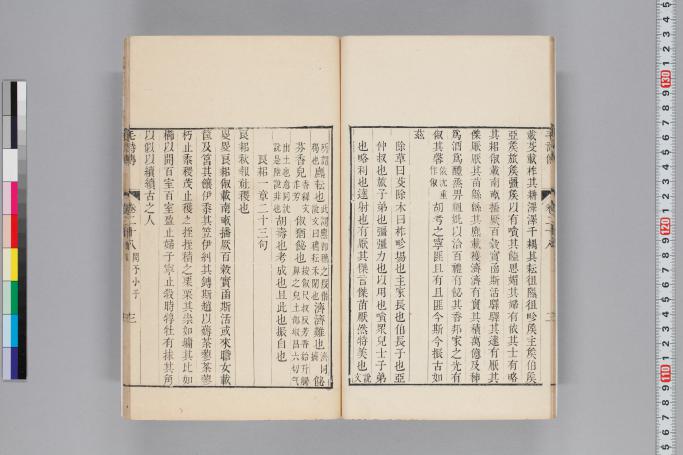 載芟載柞其耕澤澤千耦其耘徂隰徂畛侯主侯伯侯
亞侯旅侯彊侯以有嗿其饁思媚其婦有依其士有略
其耜俶載南畝播厥百穀實函斯活驛驛其達有厭其
傑厭厭其苗緜緜其麃載穫濟濟有實其積萬億及秭
爲酒爲醴烝畀祖妣以洽百禮有飶其香邦家之光有
俶其馨依沈重作俶胡考之寧匪且有且匪今斯今振古如
茲
除草曰芟除木曰柞畛場也主家長也伯長子也亞
仲叔也旅子弟也彊彊力也以用也嗿衆皃士子弟
也略利也達射也有厭其傑言傑苗厭然特美也說文
麃耘也濟濟難也
芬香皃俶猶飶也
胡壽也考成也且此也振自也
良耜一章二十三句
良耜秋報社稷也
畟畟良耜俶載南畝播厥百穀實函斯活或來瞻女載
筐及筥其饟伊黍其笠伊糾其鎛斯趙以薅荼蓼荼蓼
朽止黍稷茂止穫之挃挃積之栗栗其崇如墉其比如
櫛以開百室百室盈止婦子寧止殺時犉牡有捄其角
以似以續續古之人
毛詩傳 卷二十八 閔予小子 三